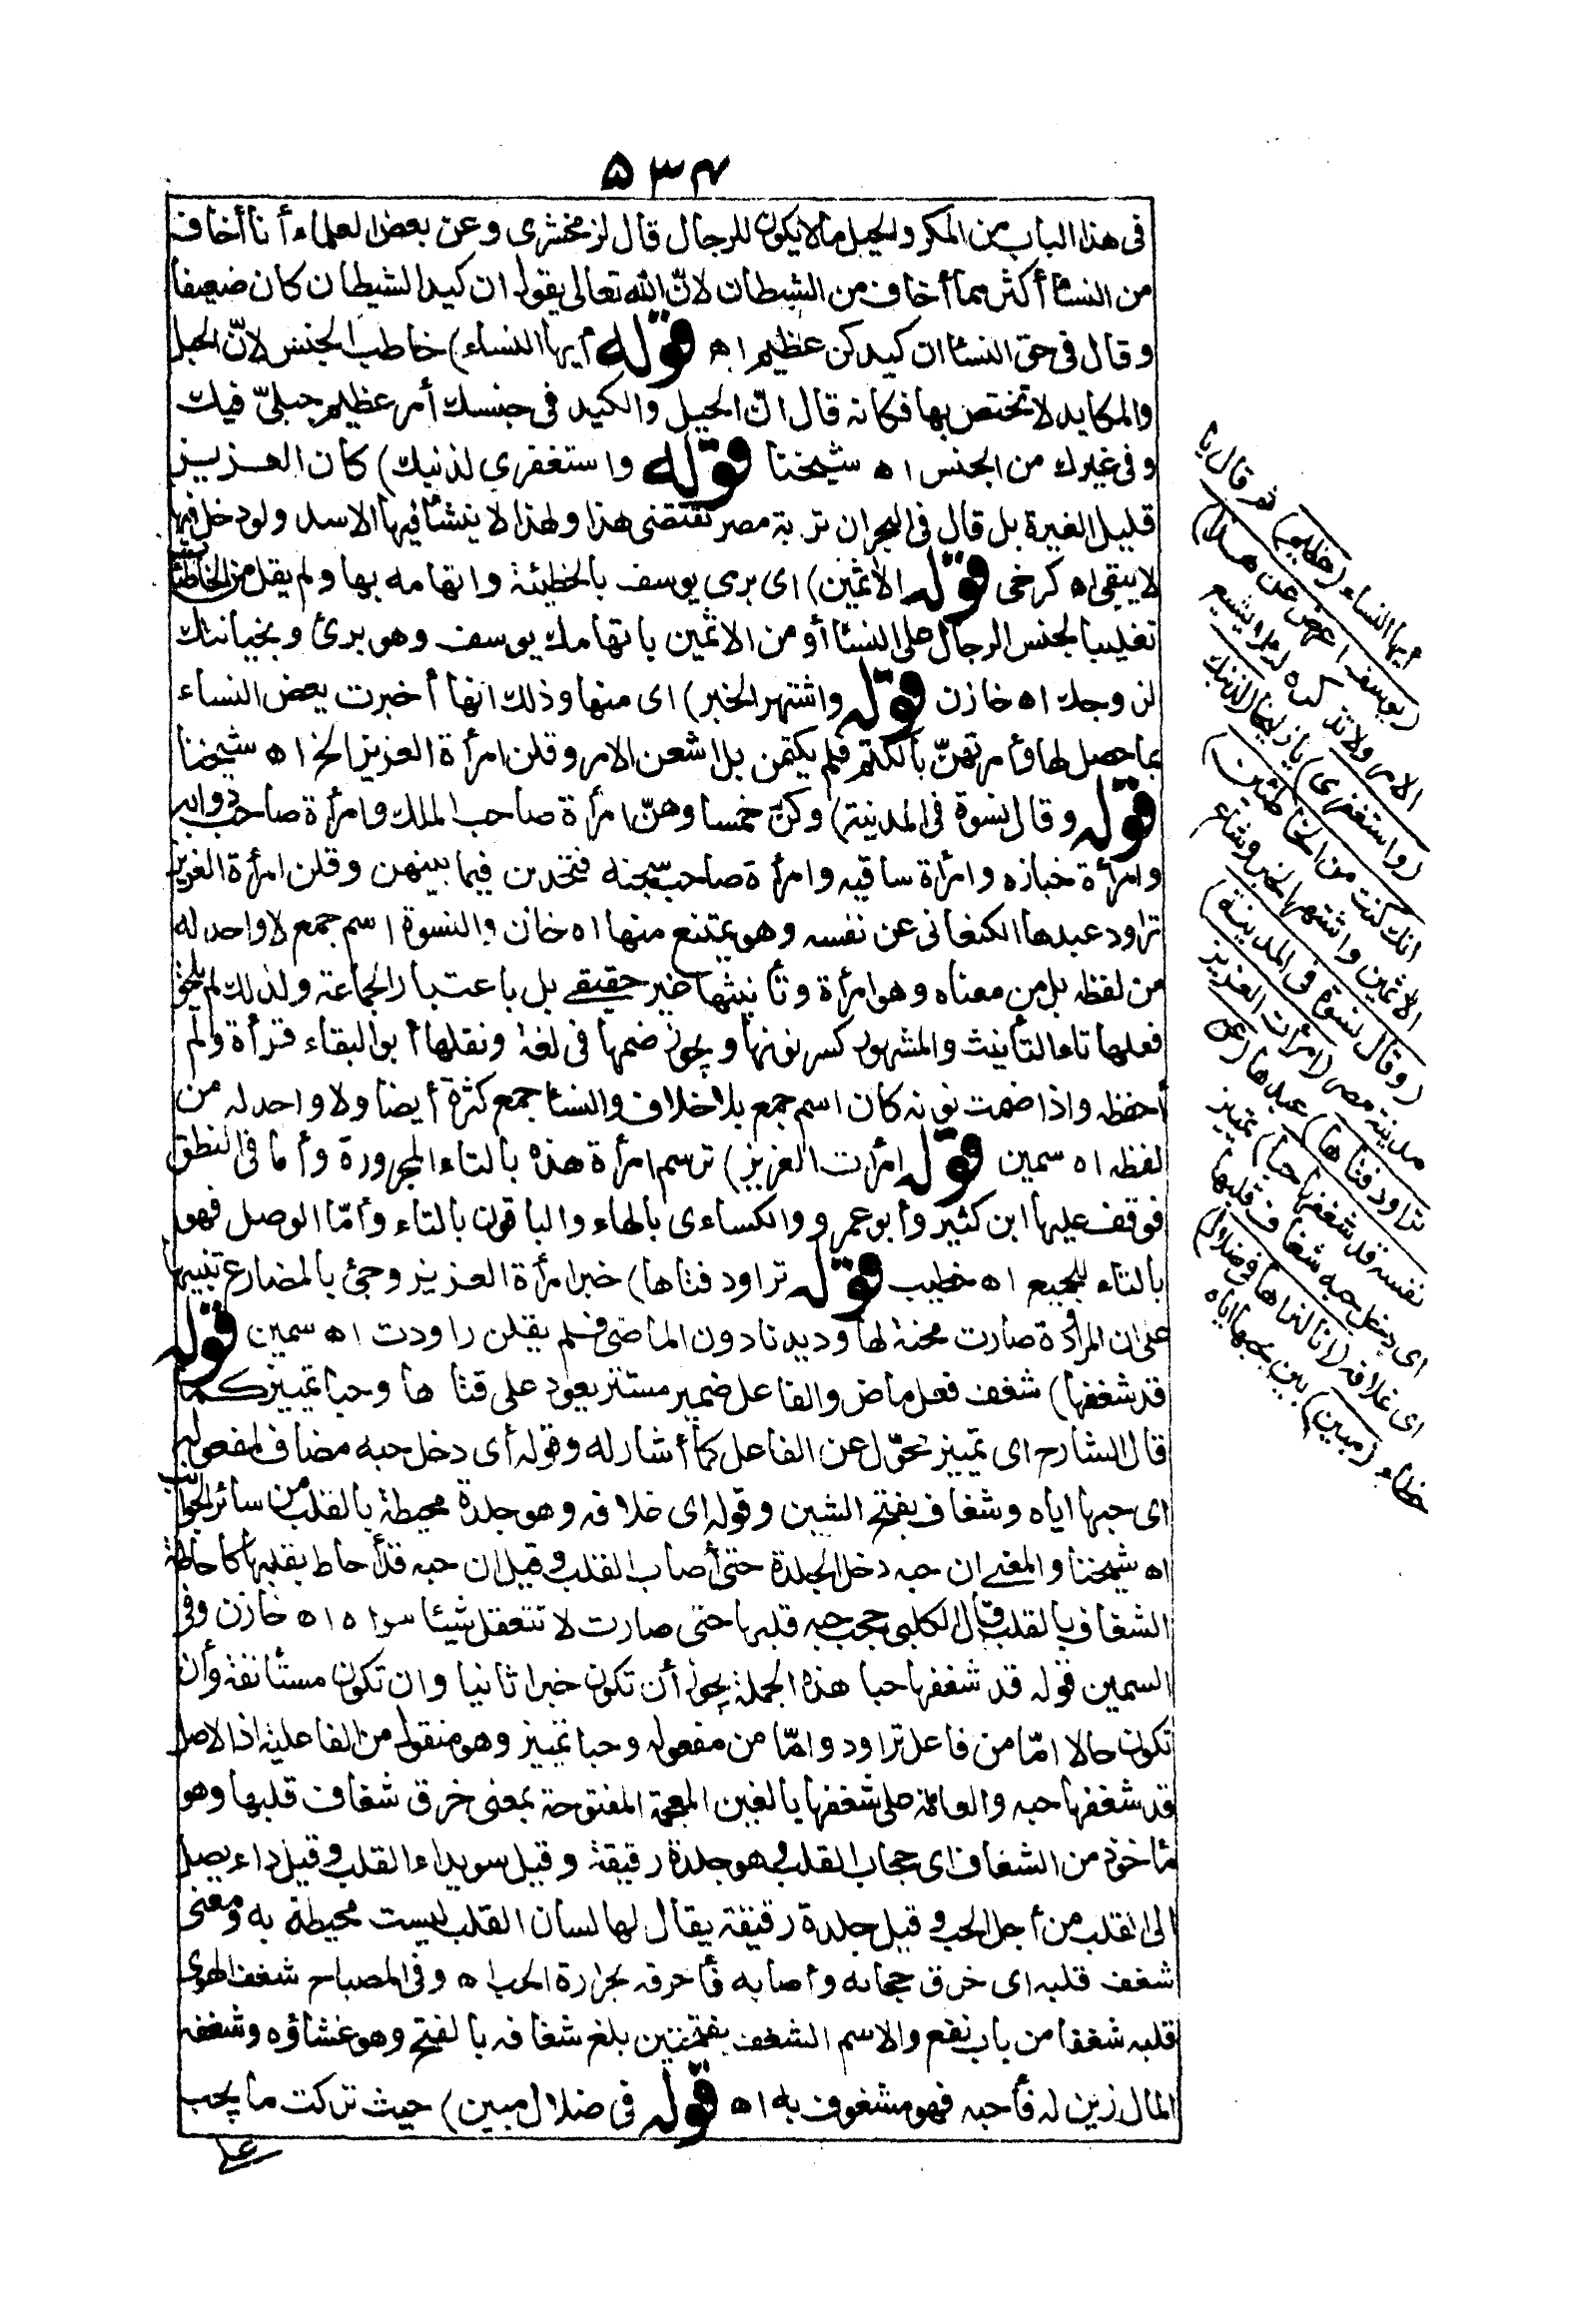 ۵۳۴
فى هذا الباب من المكر والحيل مالا يكون للرجال قال لزمخشرى وعن بعض العلماء أنا أخاف
من النساء أكثر مما أخاف من الشيطان لانّ الله تعالى يقول ان كيد الشيطان كان ضعيفا
وقال فى حق النساء ان كيدكن عظيم اه قوله أيها النساء) خاطب الجنس لانّ الحيل
والمكايد لا تختص بها فكانه قال انّ الحيل والكيد فى جنسك أمر عظيم جبلىّ فيك
وفى غيرك من الجنس اه شيخنا قوله واستغفرى لذنبك) كان العزيز
قليل الغيرة بل قال فى البحر ان تربة مصر تقتضى هذا ولهذا لا ينشأ فيها الاسد ولو دخل فيها
لا يبقى اه كرخى قوله الآثمين) اى برمى يوسف بالخطيئة واتهامه بها ولم يقل من الخاطئات
تغليبا لجنس الرجال على النساء أو من الآثمين باتهامك يوسف وهو برئ وبخيانتك
لزوجك اه خازن قوله واشتهر الخبر) اى منها وذلك انها أخبرت بعض النساء
بما حصل لها وأمرتهنّ بالكتم فلم يكتمن بل اشعن الامر وقلن امرأة العزيز الخ اه شيخنا
قوله وقال نسوة فى المدينة) وكنّ خمسا وهنّ امرأة صاحب الملك وامرأة صاحب دوابه
وامرأة خبازه وامرأة ساقيه وامرأة صاحب سجنه فتحدثن فيما بينهن وقلن امرأة العزيز
تراود عبدها الكنعانى عن نفسه وهو يمتنع منها اه خازن والنسوة اسم جمع لا واحد له
من لفظه بل من معناه وهو امرأة وتأنيثها غير حقيقى بل باعتبار الجماعة ولذلك لم يلحق
فعلها تاء التأنيث والمشهور كسر نونها ويجوز ضمها فى لغة ونقلها أبو البقاء قرأة ولم
أحفظه واذا ضمت نونه كان اسم جمع بلا خلاف والنساء جمع كثرة أيضا ولا واحد له من
لفظه اه سمين قوله امرأت العزيز) ترسم امرأة هذه بالتاء المجرورة وأما فى النطق
فوقف عليها ابن كثير وأبو عمرو والكساءى بالهاء والباقون بالتاء وأمّا الوصل فهو
بالتاء للجميع اه خطيب قوله تراود فتاها) خبر امرأة العزيز وجئ بالمضارع تنبيها
على ان المرأدة صارت محنة لها وديدنا دون الماضى فلم يقلن راودت اه سمين قوله
قد شغفها) شغف فعل ماض والفاعل ضمير مستتر يعود على فتاها وحبا تمييز كما
قال الشارح اى تمييز محوّل عن الفاعل كما أشار له وقوله أى دخل حبه مضاف لمفعوله
اى حبها اياه وشغاف بفتح الشين وقوله اى غلافه وهو جلدة محيطة بالقلب من سائر الجوانب
اه شيخنا والمعنى ان حبه دخل الجلدة حتى أصاب القلب وقيل ان حبه قد أحاط بقلبها كاحاطة
الشغاف بالقلب قال الكلبى حجب حبه قلبها حتى صارت لا تتعقل شيئا سواه اه خازن وفى
السمين قوله قد شغفها حبا هذه الجملة يجوز أن تكون خبرا ثانيا وان تكون مستأنفة وأن
تكون حالا امّا من فاعل تراود وامّا من مفعوله وحبا تمييز وهو منقول من الفاعلية اذ الاصل
قد شغفها حبه والعامّة على شغفها بالغين المعجمة المفتوحة بمعنى خرق شغاف قلبها وهو
مأخوذ من الشغاف اى حجاب القلب وهو جلدة رقيقة وقيل سويداء القلب وقيل داء يصل
الى القلب من أجل الحب وقيل جلدة رقيقة يقال لها لسان القلب ليست محيطة به ومعنى
شغف قلبه اى خرق حجابه وأصابه فأحرقه بحرارة الحب اه وفى المصباح شغف الهوى
قلبه شغفا من باب نفع والاسم الشغف بفتحتين بلغ شغافه بالفتح وهو غشاؤه وشغفه
المال زين له فأحبه فهو مشغوف به اه قوله فى ضلال مبين) حيث تركت ما يجب
على
أيها النساء (عظيم) ثم قال يا
(يوسف اعرض عن هذا)
الامر ولا تذكره لئلا يشيع
(واستغفرى) يا زليخا (لذنبك
انك كنت من الخاطئين)
الآثمين واشتهر الخبر وشاع
(وقال نسوة فى المدينة)
مدينة مصر (امرأت العزيز
تراود فتاها) عبدها (عن
نفسه قد شغفها حبا) تمييز
اى دخل حبه شغاف قلبها
اى غلافه (انا لنراها فى ضلال)
خطاء (مبين) بين بحبها اياه